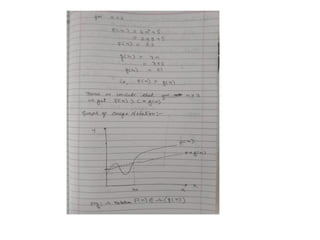 for n=3
F(n) = 2n²+5
= 2×9+5
F(n) = 23
g(n) = 7n
= 7×3
g(n) = 21
i.e, F(n) > g(n)
Hence we conclude that for n≥3
we get F(n) ≥ c*g(n)
Graph of Omega Notation:-
y
F(n)
c*g(n)
no
x
Fig: Notation F(n) ∈ (g(n))